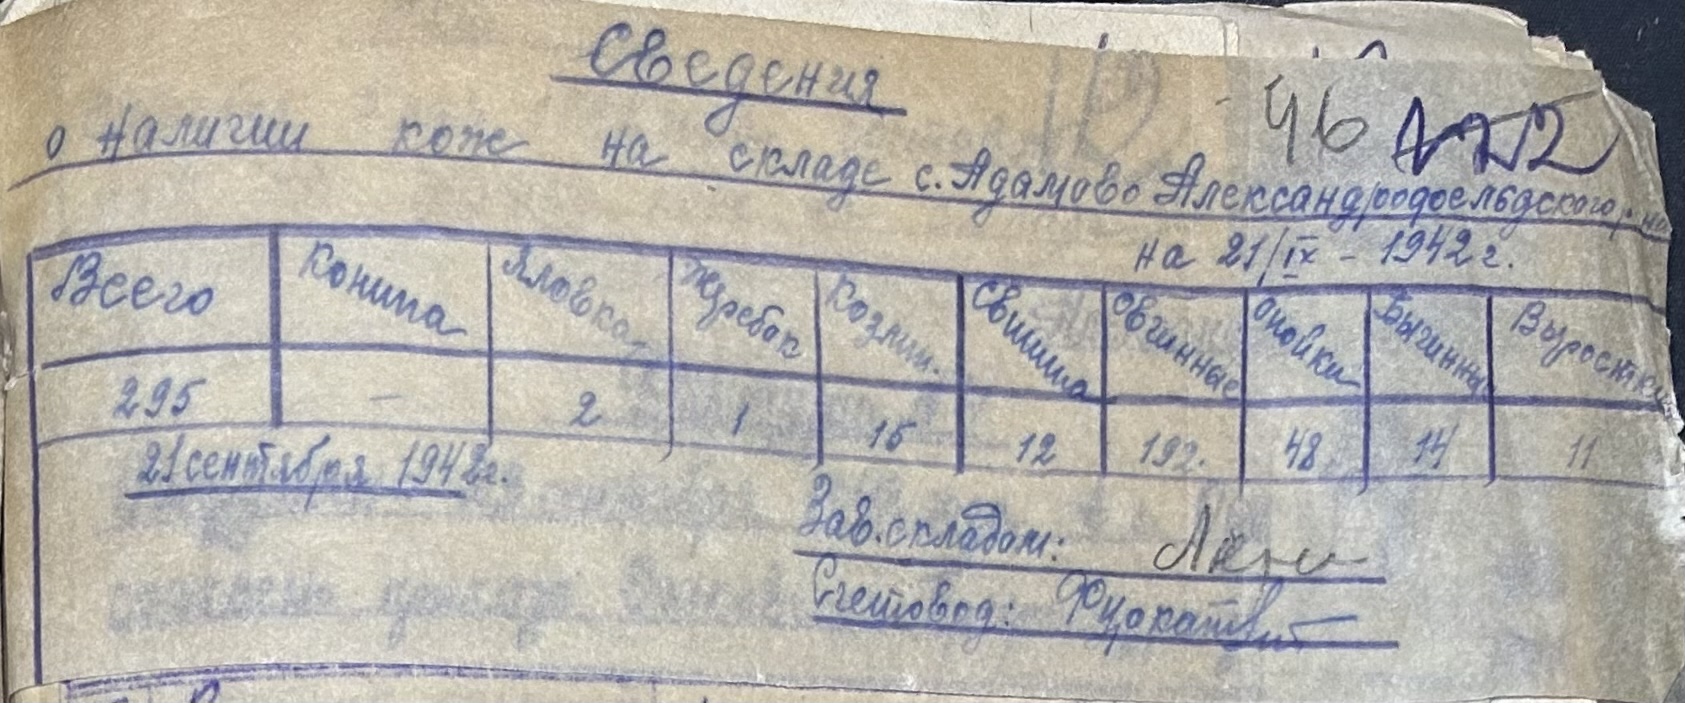 Сведения
46
о наличии кож на складе с. Адамово Александродоельдского р-на
на 21/IX - 1942 г.
Всего Конина Яловка Жребок Козлин. Свинина Овчинные Опойки Бычинны Выростки
295 - 2 1 15 12 192. 48 14 11
21 сентября 1942 г.
Зав. складом:
Счетовод: